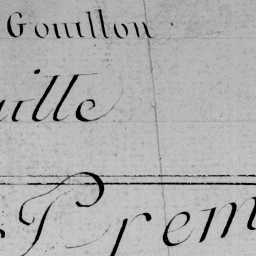 Gouillon
uille
Prem